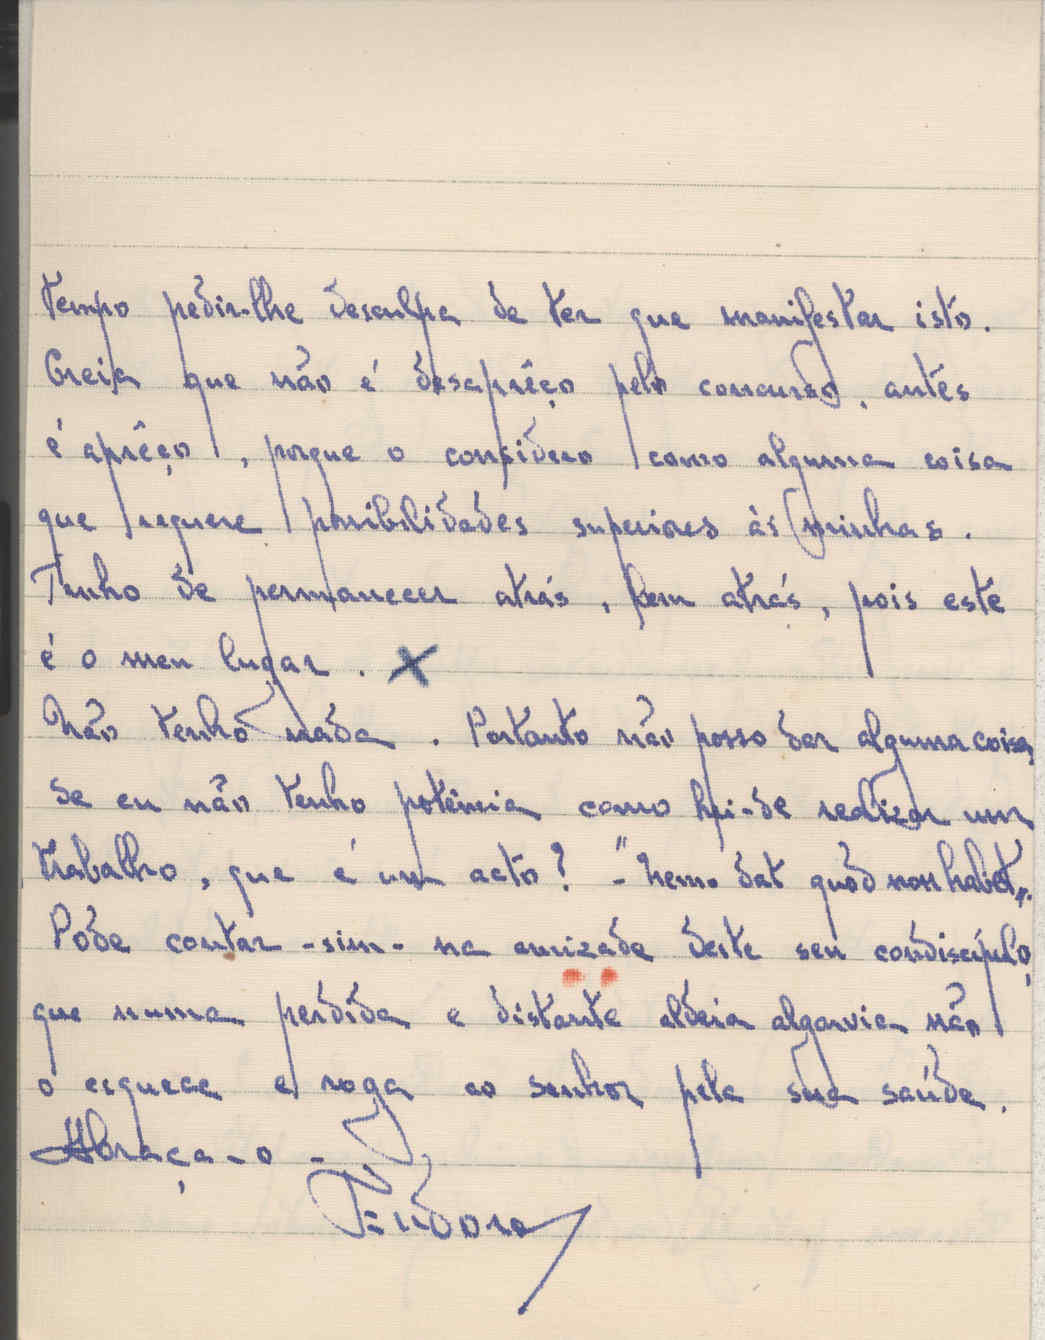 tempo pedir-lhe desculpa de ter que manifestar isto.
Creia que não é desaprêço pelo concurso, antes
é aprêço, porque o considero como alguma coisa
que requere possibilidades superiores às minhas.
Tenho de permanecer atrás, bem atrás, pois este
é o meu lugar. X
Não tenho nada. Portanto não posso dar alguma coisa
Se eu não tenho potência como hei-de realizar um
trabalho, que é um acto? - "Nemo dat quod non habet".
Póde contar -sim- na amizade deste seu condiscípulo,
que numa perdida e distante aldeia algarvia não
o esquece e roga ao senhor pela sua saúde.
Abraça-o -